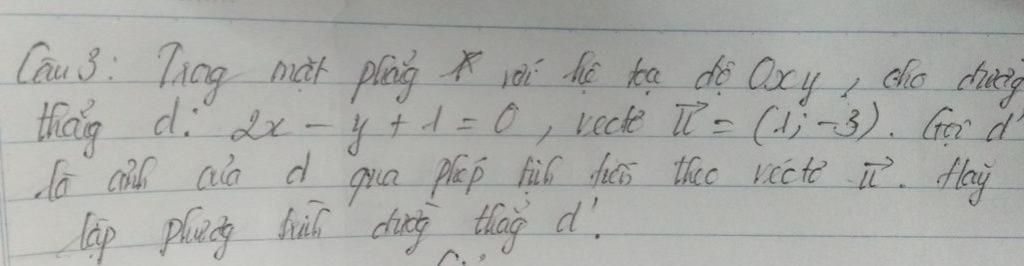 Câu 3: Trong mặt phẳng với hệ tọa độ Oxy, cho đường
thẳng d: 2x - y + 1 = 0, vectơ u⃗ = (1; -3). Gọi d'
là ảnh của d qua phép tịnh tiến theo véctơ u⃗. Hãy
lập phương trình đường thẳng d'.